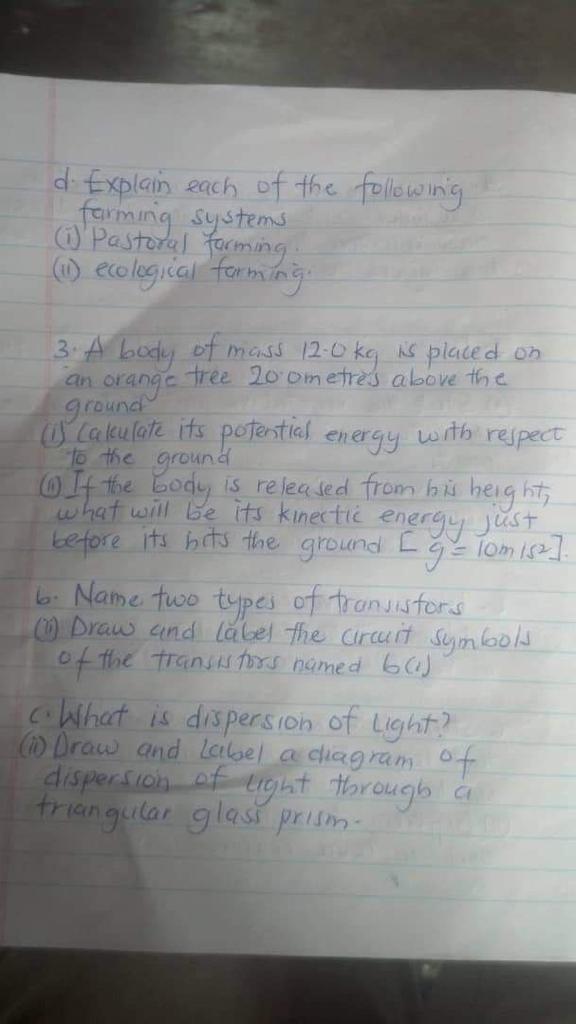 d. Explain each of the following
farming systems
(i) Pastoral farming.
(ii) ecological farming.
3. A body of mass 12.0 kg is placed on
an orange tree 20.0metres above the
ground
(i) Calculate its potential energy with respect
to the ground
(ii) If the body is released from his height,
what will be its kinectic energy just
before its hits the ground [g = 10m/s2].
b. Name two types of transistors
(ii) Draw and label the circuit symbols
of the transistors named b(i)
c. What is dispersion of Light?
(ii) Draw and Label a diagram of
dispersion of Light through a
triangular glass prism.